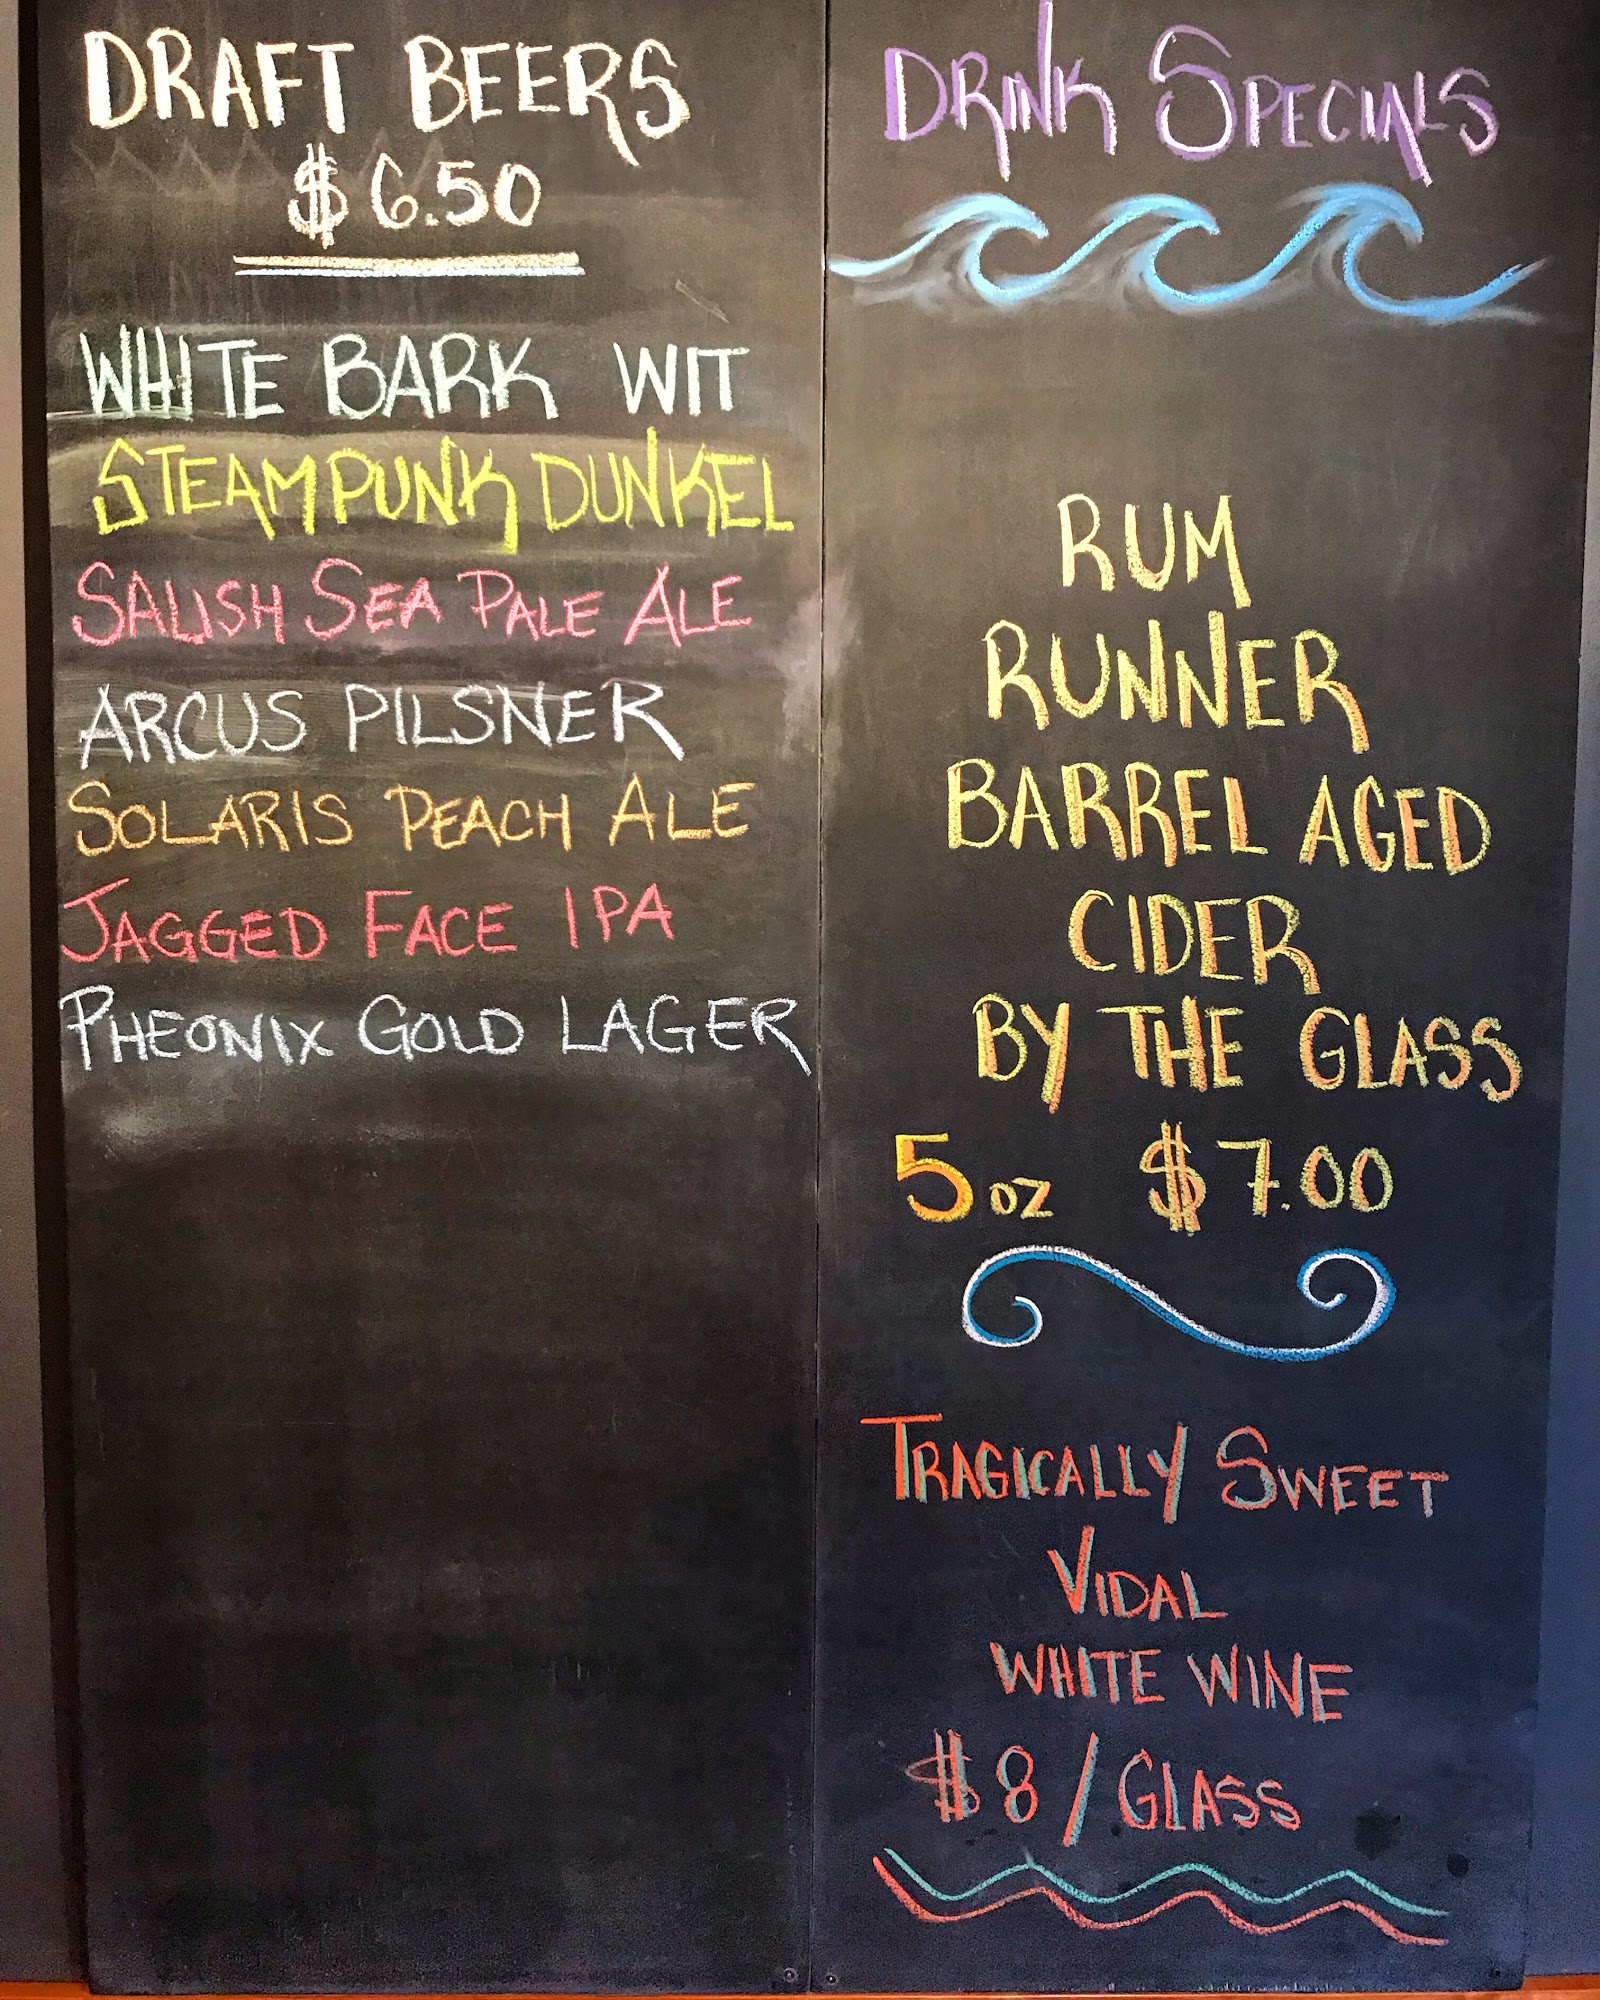 DRAFT BEERS
$6.50
WHITE BARK WIT
STEAMPUNK DUNKEL
SALISH SEA PALE ALE
ARCUS PILSNER
SOLARIS PEACH ALE
JAGGED FACE IPA
PHEONIX GOLD LAGER
DRINK SPECIALS
RUM
RUNNER
BARREL AGED
CIDER
BY THE GLASS
5 oz $7.00
TRAGICALLY SWEET
VIDAL
WHITE WINE
$8/GLASS